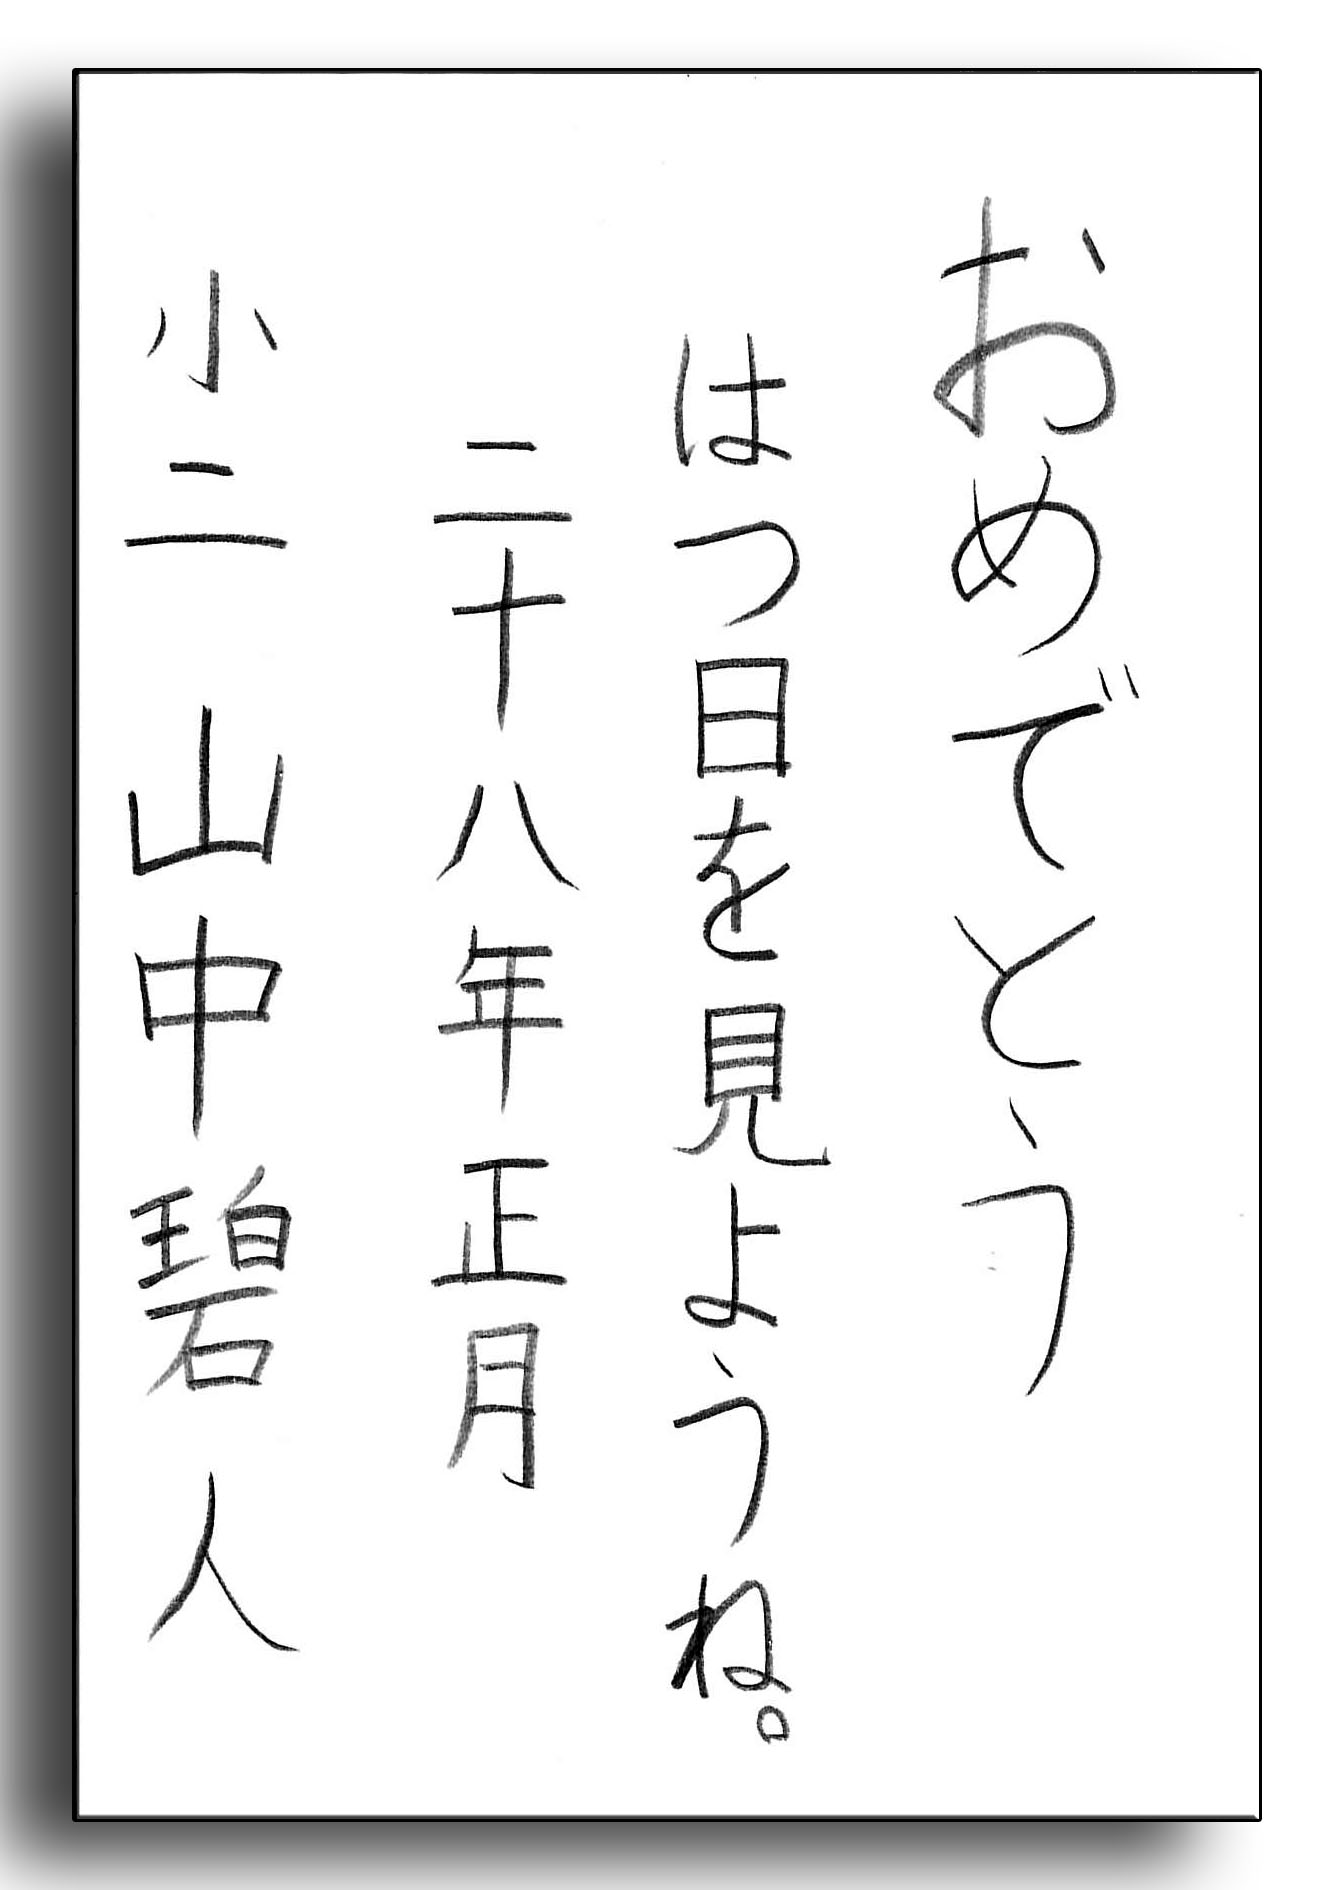 おめでとう
はつ日を見ようね。
二十八年正月
小二 山中碧人